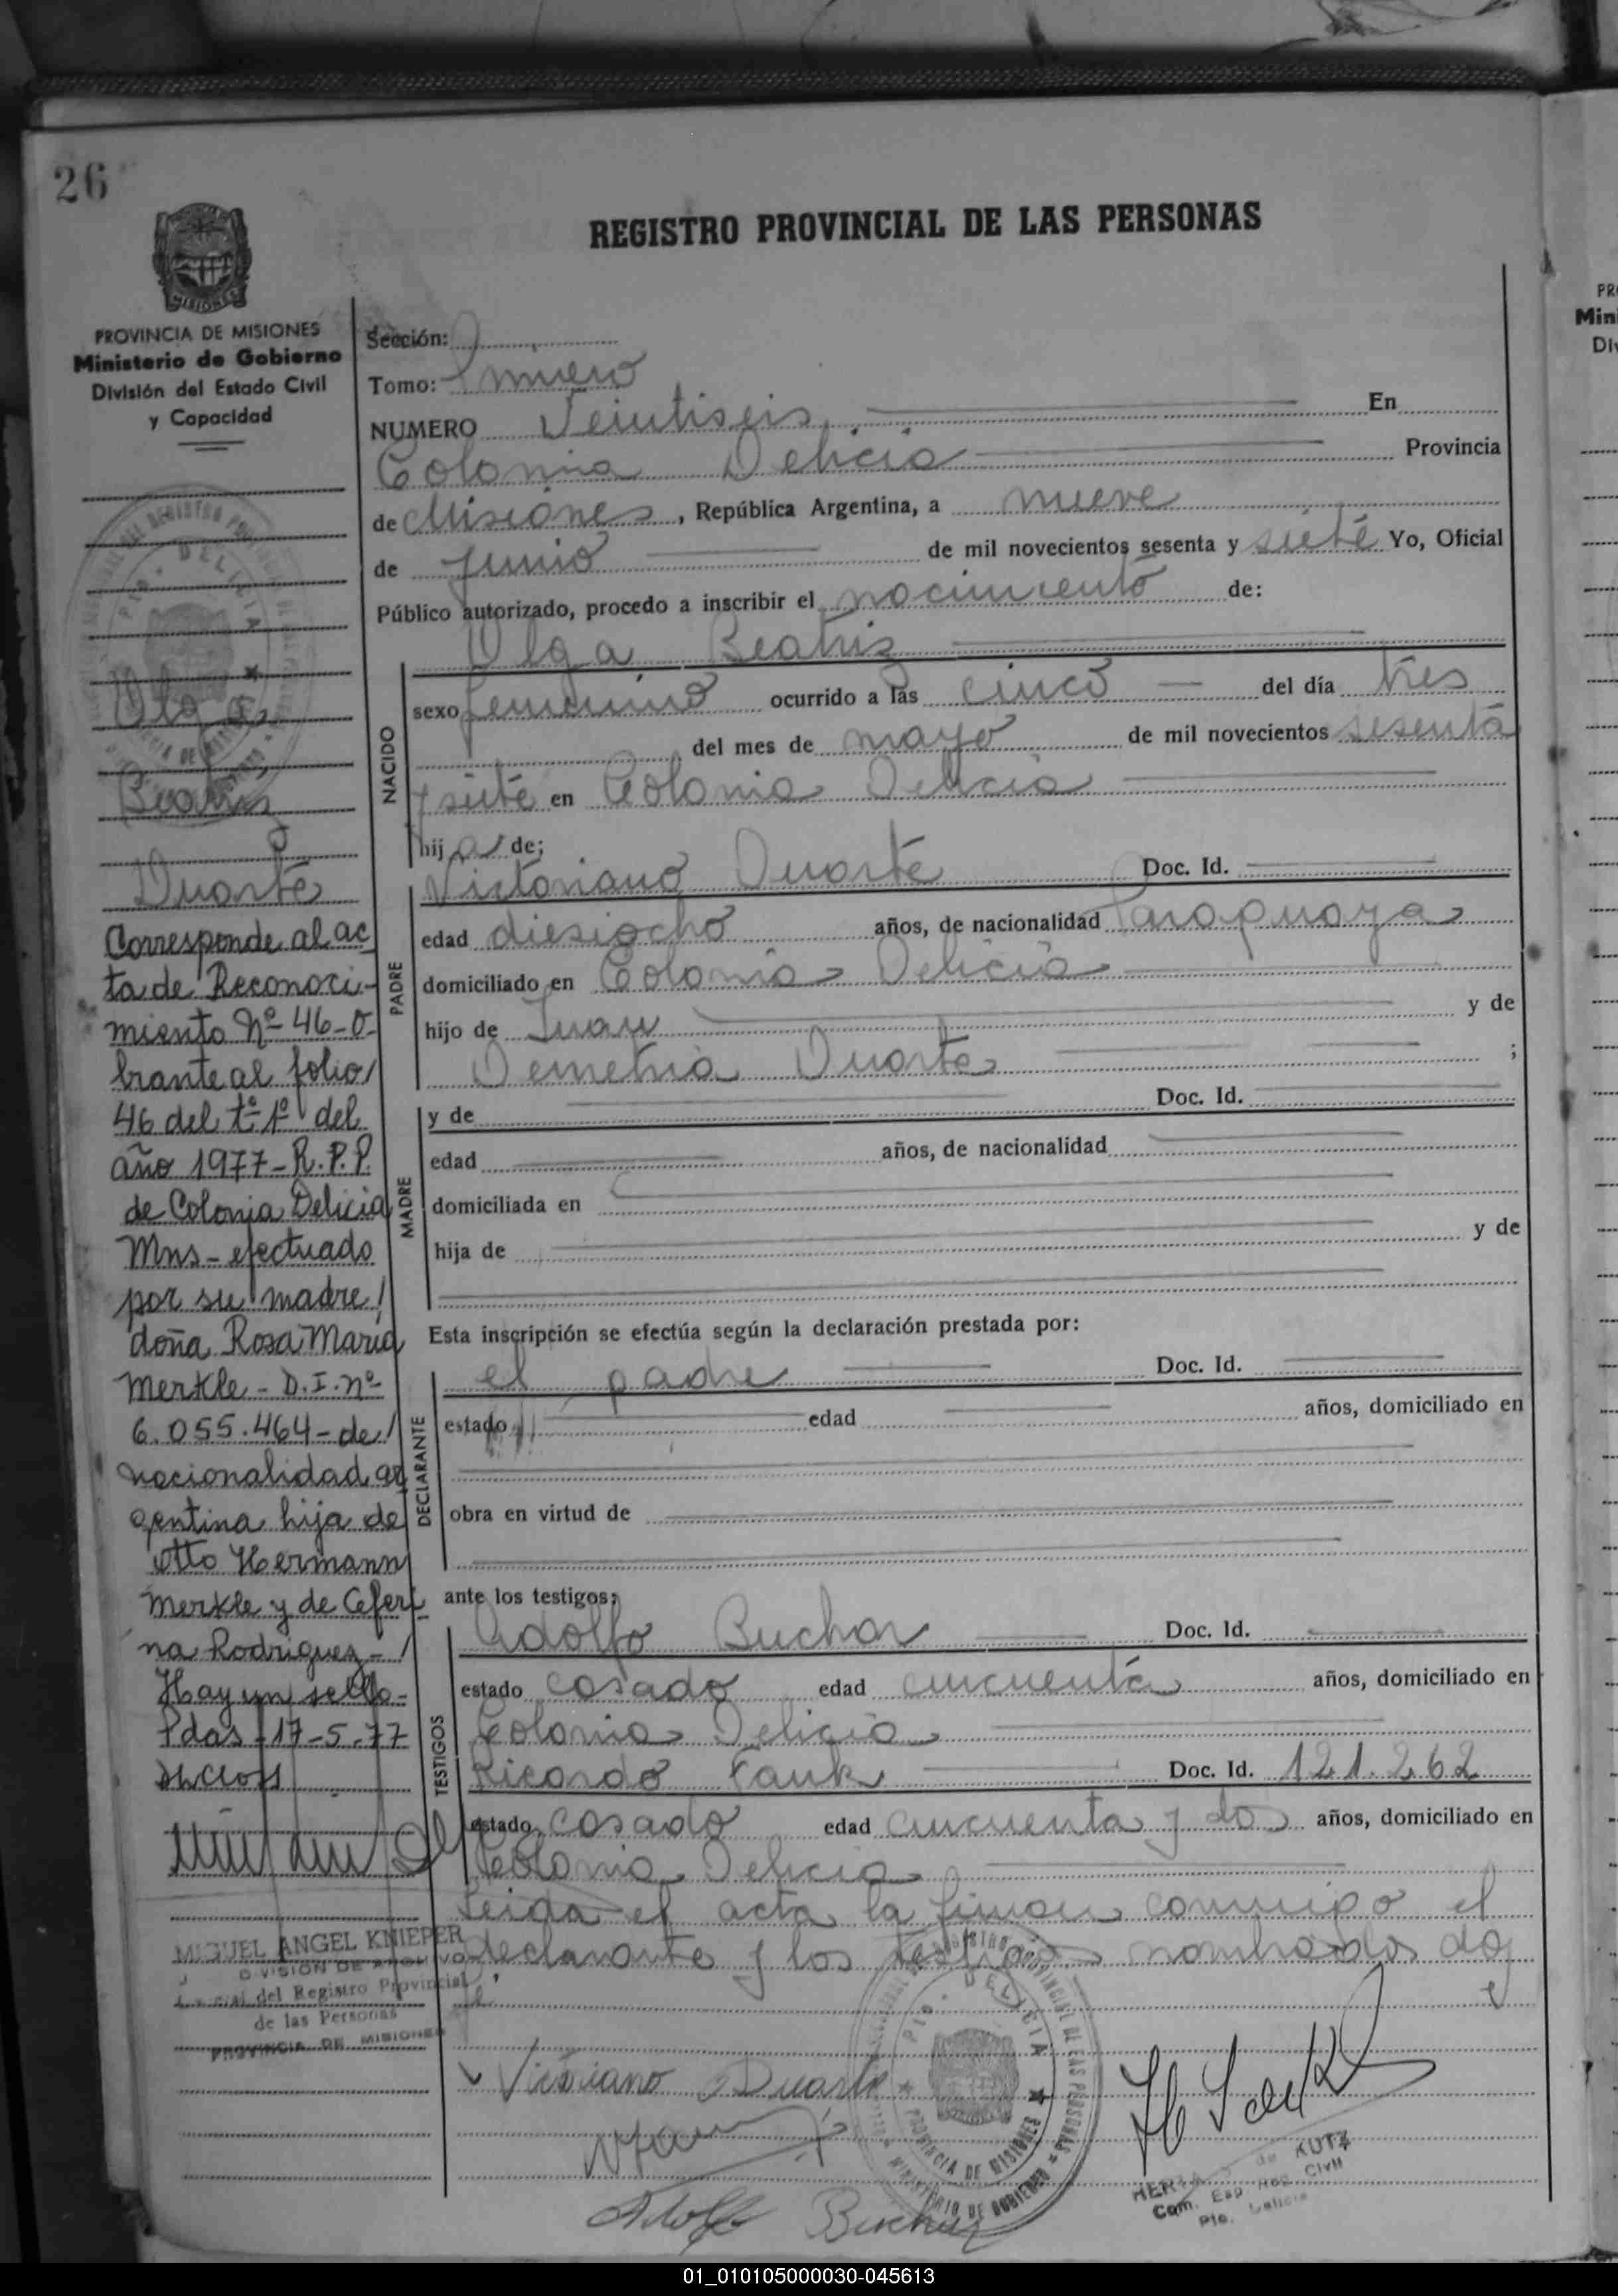 26
REGISTRO PROVINCIAL DE LAS PERSONAS
PROVINCIA DE MISIONES
Ministerio de Gobierno
División del Estado Civil
y Capacidad
Olga
Beatriz
Duarte
Corresponde al ac
ta de Reconoci-
miento Nº 46-O-
brante al folio/
46 del tº 1º del
año 1977-R.P.P.
de Colonia Delicia
Mns-efectuado
por su madre/
doña Rosa María
Merkle-D.I.nº
6.055.464-de/
nacionalidad ar
gentina hija de
Otto Hermann
Merkle y de Ceferi
na Rodriguez-/
Hay un sello-
Pdas-17-5-77
MIGUEL ANGEL KNIEPER
DIVISION DE ARCHIVO
del Registro Provincial
de las Personas
PROVINCIA DE MISIONES
Sección:
Tomo: Primero
NUMERO Veintiseis En
Colonia Delicia Provincia
de Misiones, República Argentina, a nueve
de junio de mil novecientos sesenta y siete Yo, Oficial
Público autorizado, procedo a inscribir el nacimiento de:
Olga Beatriz
NACIDO
sexo femenino ocurrido a las cinco del día tres
del mes de mayo de mil novecientos sesenta
y siete en Colonia Delicia
hija de;
PADRE
Victoriano Duarte Doc. Id.
edad diesiocho años, de nacionalidad Paraguaya
domiciliado en Colonia Delicia
hijo de Juan y de
Demetria Duarte ;
MADRE
y de Doc. Id.
edad años, de nacionalidad
domiciliada en
hija de y de
Esta inscripción se efectúa según la declaración prestada por:
DECLARANTE
el padre Doc. Id.
estado edad años, domiciliado en
obra en virtud de
ante los testigos:
TESTIGOS
Adolfo Buchar Doc. Id.
estado casado edad cincuenta años, domiciliado en
Colonia Delicia
Ricardo Fank Doc. Id. 121.262
estado casado edad cincuenta y dos años, domiciliado en
Colonia Delicia
Leida el acta la firman conmigo el
declarante y los testigos nombrados doy
Victoriano Duarte
Adolfo Buchar
PTO. DELICIA
PROVINCIA DE MISIONES
MINISTERIO DE GOBIERNO
de KUTZ
Reg. Civil
Pto. Delicia
01_010105000030-045613